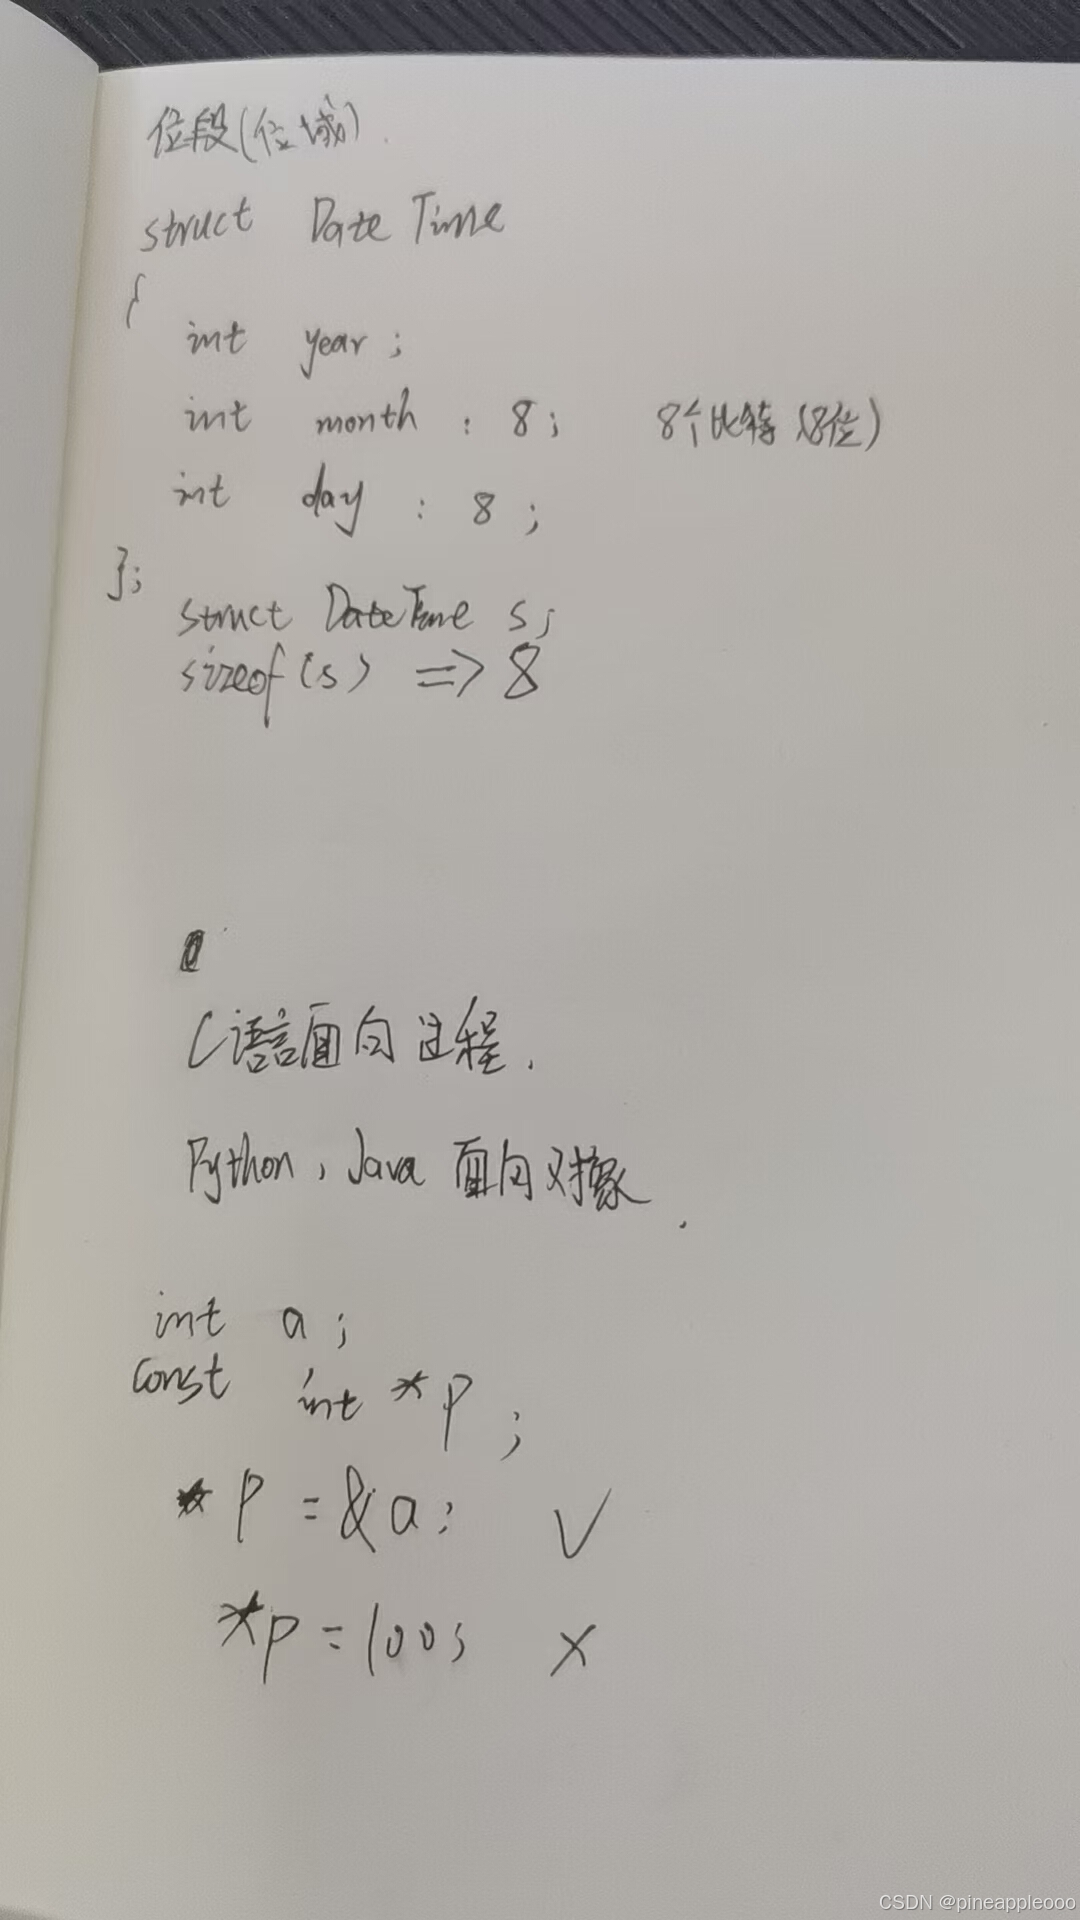 位段(位域).
struct DateTime
{
int year;
int month : 8; 8个比特(8位)
int day : 8;
};
struct DateTime s;
sizeof(s) => 8
C语言面向过程.
Python, Java 面向对象.
int a;
const int *p;
p = &a; √
*p = 100; ×
CSDN @pineappleooo